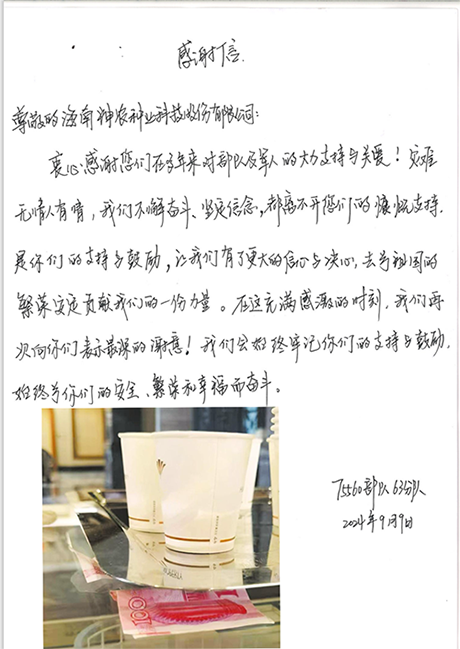 感谢信
尊敬的海南神农种业科技股份有限公司:
衷心感谢您们在多年来对部队及军人的大力支持与关爱!灾难
无情人有情,我们不懈奋斗、坚定信念,都离不开您们的慷慨支持,
是你们的支持与鼓励,让我们有了更大的信心与决心,去为祖国的
繁荣安定贡献我们的一份力量。在这充满感激的时刻,我们再
次向你们表示最深的谢意!我们会始终牢记你们的支持与鼓励,
始终为你们的安全、繁荣和幸福而奋斗。
75560部队63分队
2024年9月9日
100